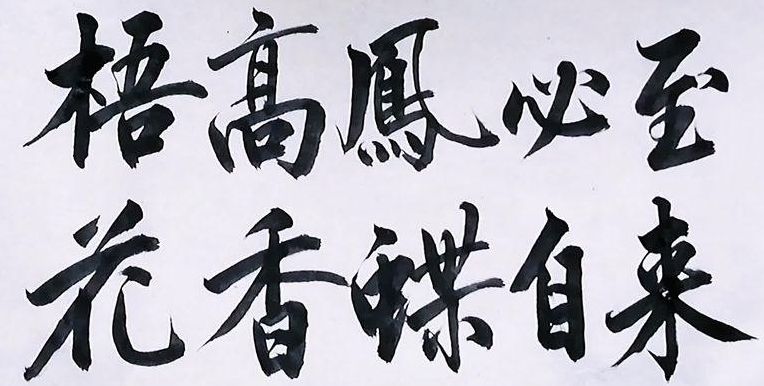 梧高鳳必至
花香蝶自来